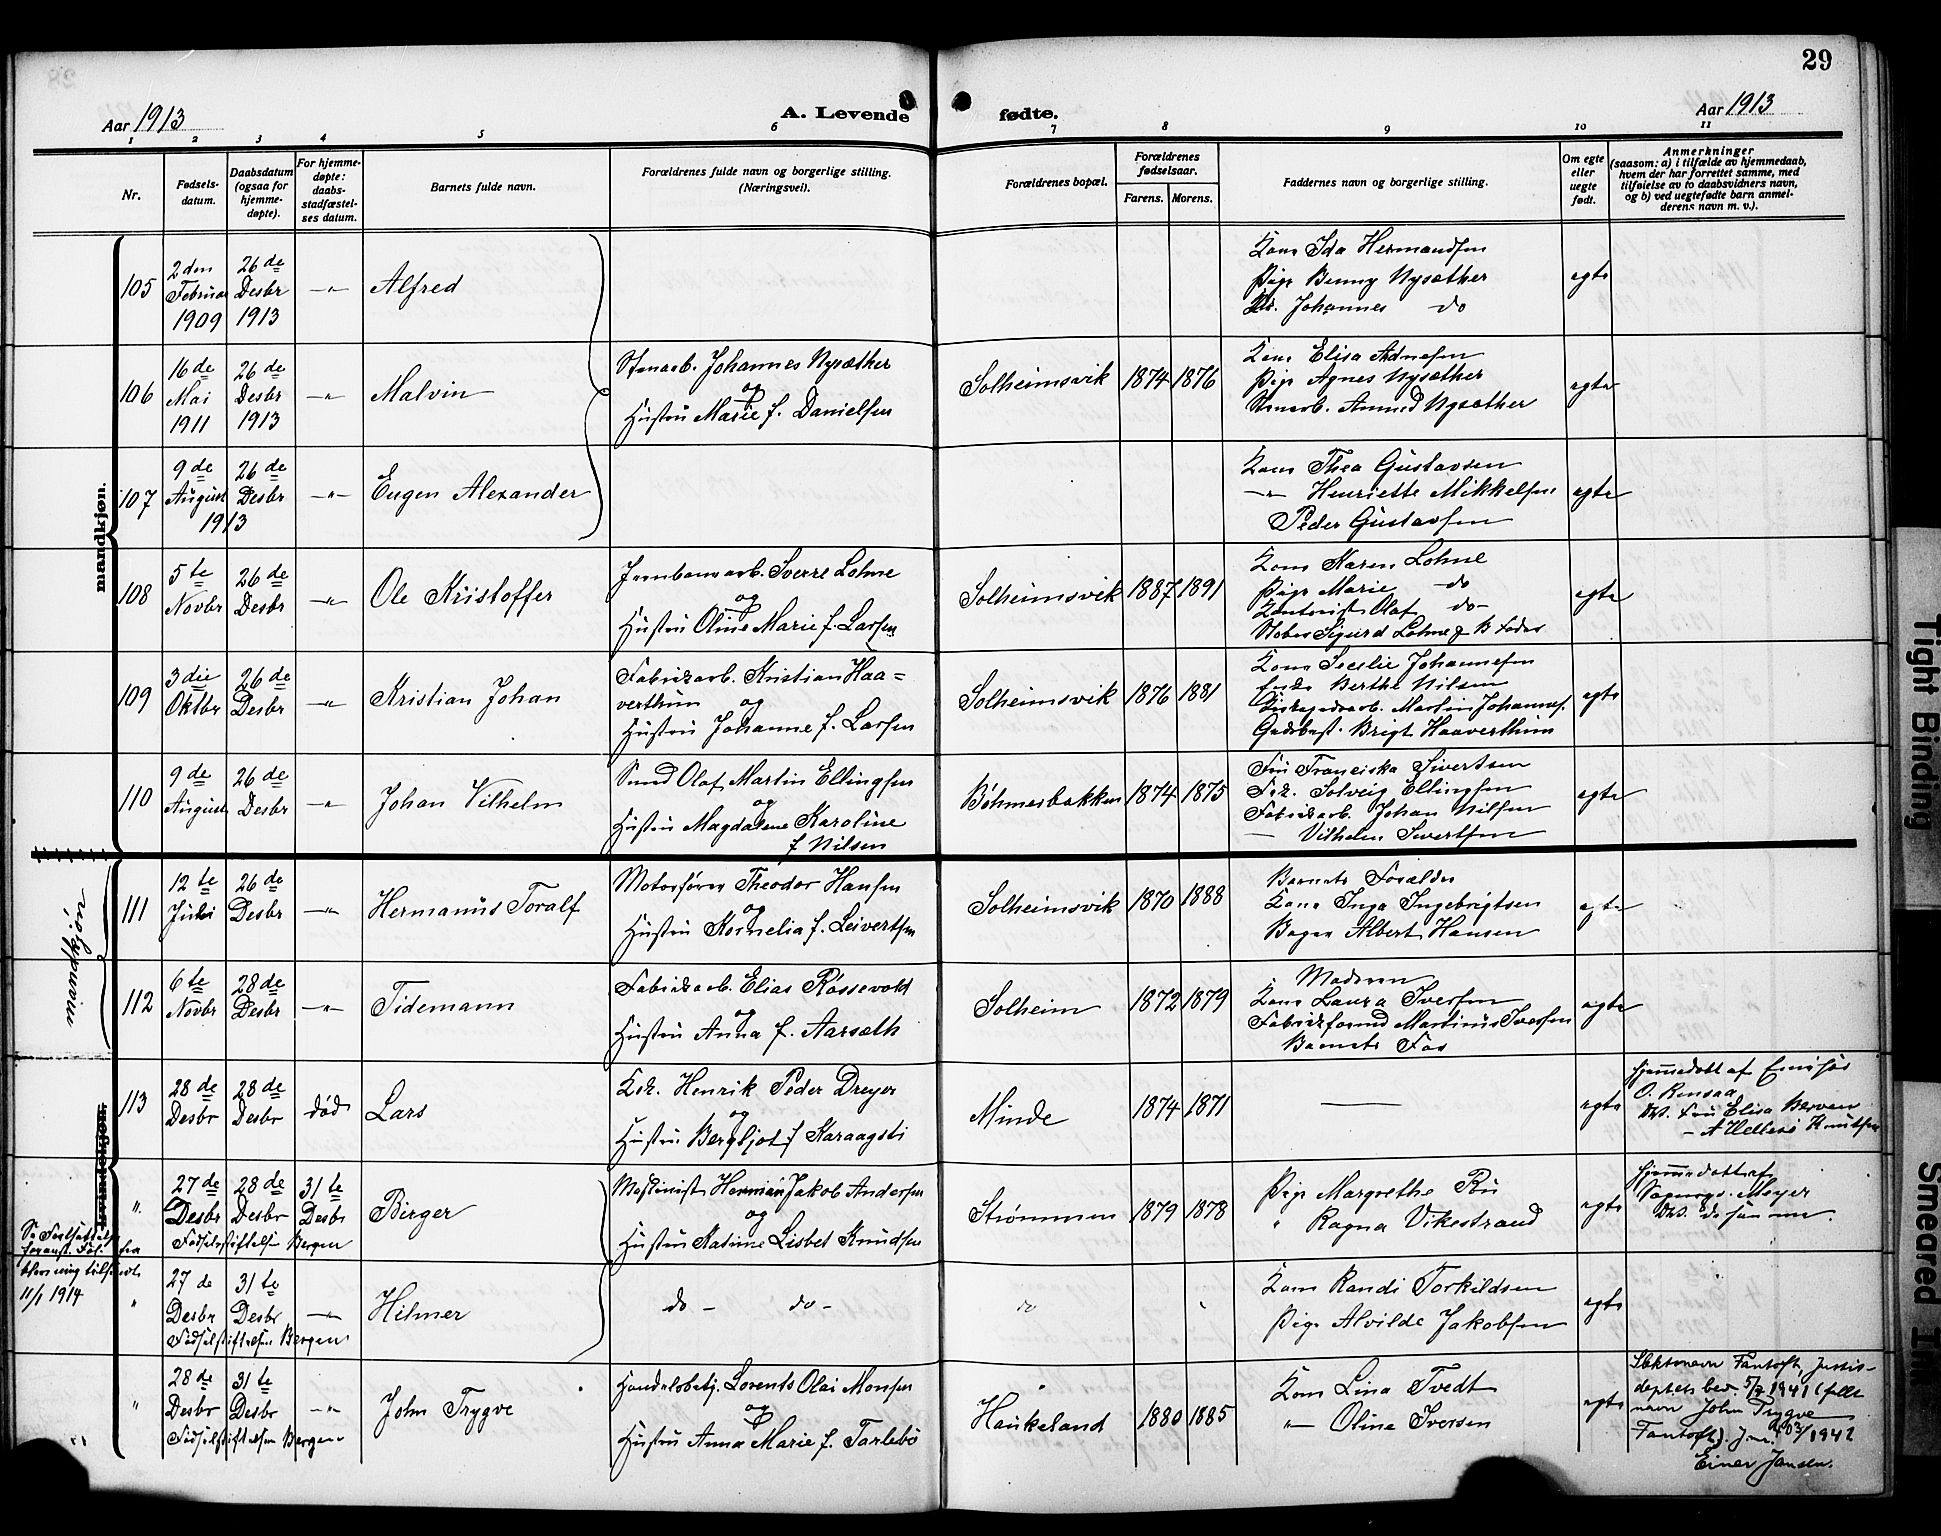 29
Aar 1913
A. Levende fødte.
Aar 1913
1 2 3 4 5 6 7 8 9 10 11
Nr.
Fødsels-
datum.
Daabsdatum
(ogsaa for
hjemme-
døpte).
For hjemme-
døpte:
daabs-
stadfæstel-
ses datum.
Barnets fulde navn.
Forældrenes fulde navn og borgerlige stilling.
(Næringsvei).
Forældrenes bopæl.
Forældrenes
fødselsaar.
Farens. Morens.
Faddernes navn og borgerlige stilling.
Om egte
eller
uegte
født.
Anmerkninger
(saasom: a) i tilfælde av hjemmedaab,
hvem der har forrettet samme, med
tilføielse av to daabsvidners navn,
og b) ved uegtefødte barn anmel-
derens navn m. v.).
mandkjøn.
105
2den
Februar
1909
26de
Desbr
1913
-"-
Alfred
Kone Ida Hermandsen
Pige Benny Nysæther
Johannes do
egte
106
16de
Mai
1911
26de
Desbr
1913
-"-
Malvin
Stenarb. Johannes Nysæther
og
Hustru Marie f. Danielsen
Solheimsvik
1874
1876
Kone Elisa Adnesen
Pige Agnes Nysæther
Stenarb. Nysæther
egte
107
9de
August
1913
26de
Desbr
-"-
Eugen Alexander
Kone Thea Gustavsen
-"- Henriette Mikkelsen
Peder Gustavsen
egte
108
5te
Novbr
26de
Desbr
-"-
Ole Kristoffer
Jernbanearb. Sverre Lohne
og
Hustru Oline Marie f. Larsen
Solheimsvik
1887
1891
Kone Karen Lohne
Pige Marie do
Kontorist Olaf do
Sigurd Lohne & B Fader
egte
109
3die
Oktbr
26de
Desbr
-"-
Kristian Johan
Fabrikarb. Kristian Haa=
verthun og
Hustru Johanne f. Larsen
Solheimsvik
1876
1881
Kone Secelie Johannesen
Enke Berthe Nilsen
Martin Johannes.
Gaardbr. Brigt Haaverthun
egte
110
9de
August
26de
Desbr
-"-
Johan Vilhelm
Smed Olaf Martin Ellingsen
og
Hustru Magdalene Karoline
f Nilsen
Böhmerbakken
1874
1875
Fru Franciska Sivertsen
Frk. Solveig Ellingsen
Fabrikarb. Johan Nilsen
— Vilhelm Sivertsen
egte
mandkjøn
111
12te
Juli
26de
Desbr
-"-
Hermanus Toralf
Motorfører Theodor Hansen
og
Hustru Kornelia f. Leivertsen
Solheimsvik
1870
1888
Barnets Forældre
Kone Inga Ingebrigtsen
Bager Albert Hansen
egte
112
6te
Novbr
28de
Desbr
-"-
Tidemann
Fabrikarb. Elias Røssevold
og
Hustru Anna f. Aarsæth
Solheim
1872
1879
Moderen
Kone Laura Iversen
Fabrikformd Martinus Iversen
Barnets Far
egte
kvindekjøn.
113
28de
Desbr
28de
Desbr
død
Lars
Henrik Peder Dreyer
og
Hustru Bergljot f Karaagsti
Minde
1874
1871
—
egte
hjemmedøbt af
Fru Elisa Berven
"
27de
Desbr
28de
Desbr
31te
Desbr
Fødselsstiftelsen Bergen
Birger
Maskinist Herman Jakob Andersen
og
Hustru Katrine Lisbet Knudsen
Strømmen
1879
1878
Pige Margrethe Rii
" Ragna Vikestrand
egte
hjemmedøbt af
Sogneprs. Meyer
11/1 1914
"
27de
Desbr
31te
Desbr
-"-
Fødselsstiftelsen Bergen
Hilmer
do - do -
do
Kone Randi Torkildsen
Pige Alvilde Jakobsen
egte
"
28de
Desbr
31te
Desbr
-"-
Fødselsstiftelsen Bergen
John Trygve
Handelsbetj. Lorents Olai Monsen
og
Hustru Anna Marie f. Tarlebö
Haukeland
1880
1885
Kone Lina Tvedt
-"- Oline Iversen
egte
Slektsnavn Fantoft, Justis-
deptets bev. 5/7 1941 (fulle
navn John Trygve
Fantoft). J.nr. 1942
Einar Jansen.
Tight Binding
Smeared Ink